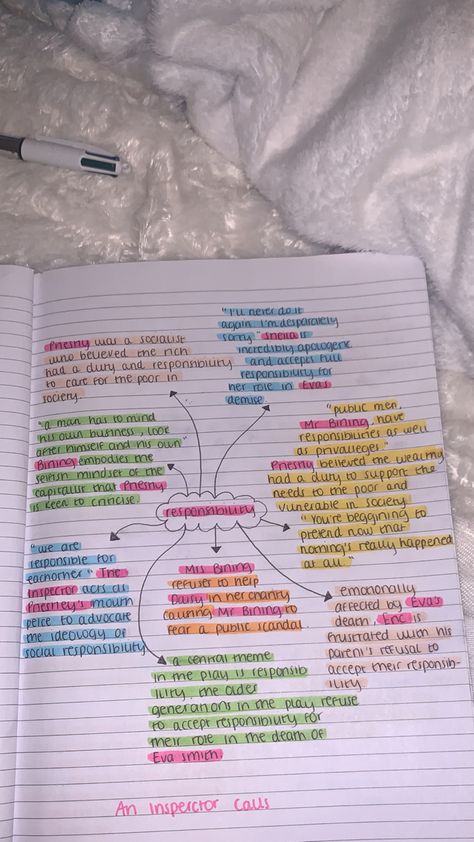 Priestly was a socialist
who believed the rich
had a duty and responsibility
to care for the poor in
society.
"I'll never do it
again. I'm desparately
sorry" Sheila is
incredibly apologetic
and accepts full
responsibility for
her role in Eva's
demise.
"a man has to mind
his own business, look
after himself and his own"
Birling embodies the
selfish mindset of the
capitalist that Priestly
is keen to criticise.
"public men,
Mr Birling, have
responsibilities as well
as privalleges"
Priestly believed the wealthy
had a duty to support the
needs to the poor and
vunerable in society.
"You're beggining to
pretend now that
nothing's really happened
at all"
responsibility
"we are
responsible for
eachother" The
Inspector acts as
Priestley's mouth
peice to advocate
the ideology of
social responsibility
Mrs Birling
refuser to help
Daisy in her charity
causing Mr Birling to
fear a public scandal.
emotionally
affected by Eva's
death, Eric is
frustrated with his
parent's refusal to
accept their responsib-
ility.
a central theme
in the play is responsib
ility. the older
generations in the play refuse
to accept responsibility for
their role in the death of
Eva Smith.
An Insperctor Calls